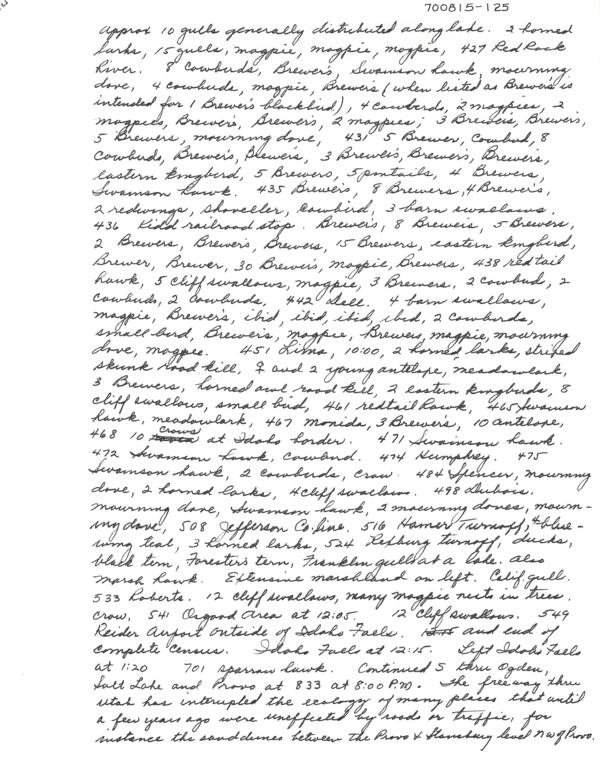 700815-125
Approx 10 gulls generally distributed along lake. 2 horned
larks, 15 gulls, magpie, magpie, magpie, 427 Red Rock
River. 8 Cowbirds, Brewer's, Swainson hawk, mourning
dove, 4 cowbirds, magpie, Brewer's (when listed as Brewer's is
intended for 1 Brewer's blackbird), 4 Cowbirds, 2 magpies, 2
magpies, Brewer's, Brewer's, 2 magpies; 3 Brewer's, Brewer's,
5 Brewers, mourning dove, 431 5 Brewer, Cowbird, 8
Cowbirds, Brewer's, Brewers, 3 Brewer's, Brewer's, Brewer's,
eastern kingbird, 5 Brewers, 5 pintails, 4 Brewers,
Swainson hawk. 435 Brewer's, 8 Brewers, 4 Brewer's,
2 redwings, shoveller, cowbird, 3 barn swallows,
436 Kidd railroad stop. Brewer's, 8 Brewer's, 5 Brewers,
2 Brewers, Brewer's, Brewers, 15 Brewers, eastern kingbird,
Brewer, Brewer, 30 Brewer's, magpie, Brewers, 438 redtail
hawk, 5 cliff swallows, magpie, 3 Brewers, 2 cowbird, 2
cowbirds, 2 cowbirds, 442 Dell. 4 barn swallows,
magpie, Brewer's, ibid, ibid, ibid, ibid, 2 Cowbirds,
small bird, Brewer's, magpie, Brewers, magpie, mourning
dove, magpie. 451 Lima, 10:00, 2 horned larks, striped
skunk road kill, ♀ and 2 young antelope, meadowlark,
3 Brewers, horned owl road kill, 2 eastern kingbirds, 8
cliff swallows, small bird, 461 redtail hawk, 465 Swainson
hawk, meadowlark, 467 Monida, 3 Brewer's, 10 antelope,
468 10 crows at Idaho border. 471 Swainson hawk.
472 Swainson hawk, cowbird. 474 Humphrey. 475
Swainson hawk, 2 cowbirds, crow. 484 Spencer, mourning
dove, 2 horned larks, 4 cliff swallows. 498 Dubois.
mourning dove, Swainson hawk, 2 mourning doves, mourn-
ing dove, 508 Jefferson Co. line. 516 Hamer Turnoff, 4 blue-
wing teal, 3 horned larks, 524 Rexburg turnoff, ducks,
black tern, Forester's tern, Franklin gulls at a lake. Also
marsh hawk. Extensive marshland on left. Calif. gull.
533 Roberts. 12 cliff swallows, many magpie nests in trees.
crow, 541 Osgood Area at 12:05. 12 Cliff swallows. 549
Reider Airport outside of Idaho Falls. and end of
complete Census. Idaho Falls at 12:15. Left Idaho Falls
at 1:20 701 sparrow hawk. Continued S thru Ogden,
Salt Lake and Provo at 833 at 8:00 P.M. The freeway thru
Utah has interupted the ecology of many places that until
a few years ago were uneffected by roads or traffic, for
instance the sand dunes between the Provo & Stansbury level nw of Provo.